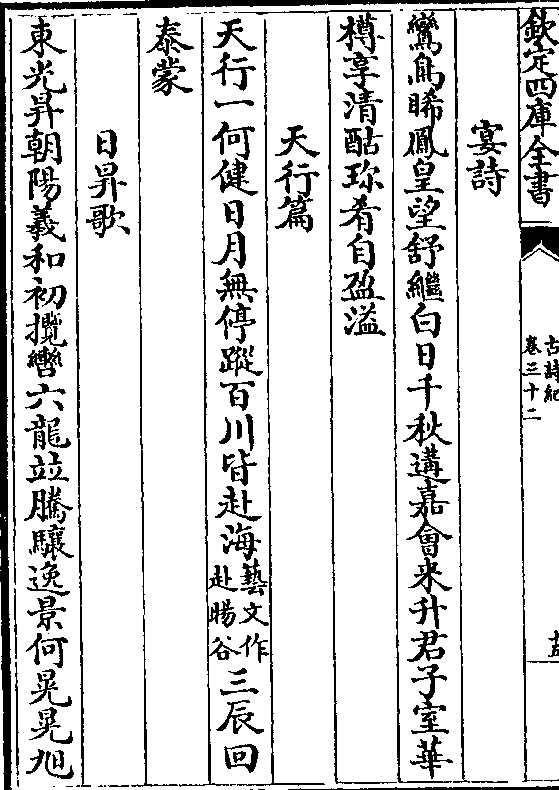 欽定四庫全書
古詩紀
卷三十二
宴詩
鸞鳥睎鳳皇望舒繼白日千秋遘嘉會来升君子室華
樽享清酤珎肴自盈溢
天行篇
天行一何健日月無停蹤百川皆赴海藝文作赴暘谷三辰回
泰蒙
日昇歌
東光昇朝陽羲和初攬轡六龍竝騰驤逸景何晃晃旭